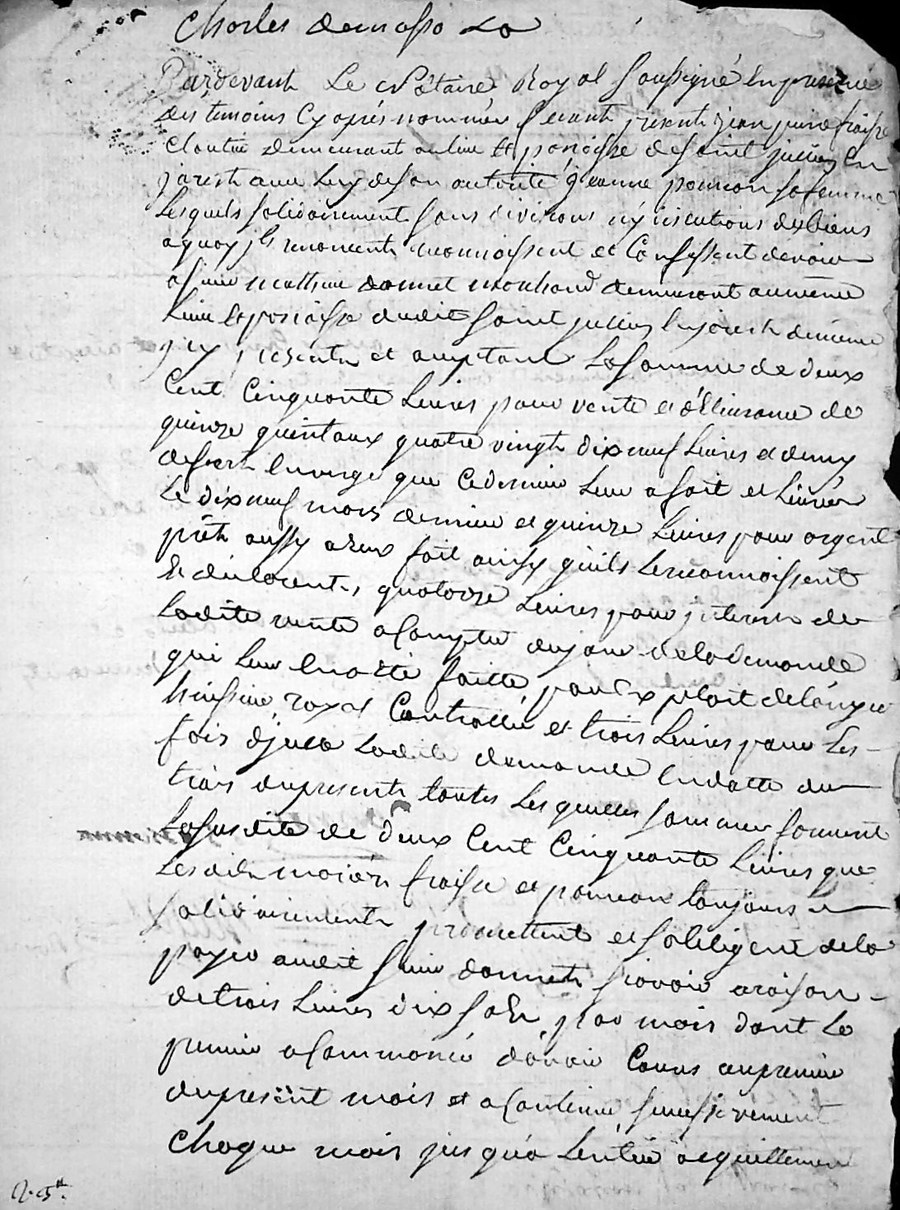 Charles demasso La
Pardevant Le Notaire Royal Soussigné En presence
des temoins Cy aprés nommés furent presents jean pierre fraisse
Cloutier demeurant au lieu et paroisse de saint jullien En
jarest avec luy de son autorité jeanne poncon sa femme
Lesquels solidairement sans divisions n'y discutions de biens
a quoy jls renoncent reconnoissent et Confessent devoir
a sieur mathieu donnet marchand demeurant au même
Lieu et paroisse dudit saint jullien En jarest de même
jcy present et acceptant La somme de deux
Cent Cinquante Livres pour vente et délivrance de
quinze quintaux quatre vingt dix neuf Livres et demy
de fer En verge que ce dernier Leur a fait et Livrée
Le dix neuf mars dernier et quinze Livres pour argent
prêté aussy a Eux fait ainsy qu'ils Le reconnoissent
Et déclarent, quatorze Livres pour jnterets de
Ladite vente a Compter du jour de la demande
qui Leur En a été faitte par Exploit de
huissier royal Controllé et trois Livres pour Les
frais d'jcelle Ladite demande En datte du
trois du present toutes Les quelles sommes forment
La susdite de deux Cent Cinquante Livres que
Lesdits mariés fraisse et poncon toujours
solidairement promettent et s'obligent de la
payer audit sieur donnet sçavoir a raison
de trois Livres dix sols par mois dont Le
premier a Commencé d'avoir Cours au premier
du present mois et a Continuer successivement
Chaque mois jusqu'a L'entier acquittement